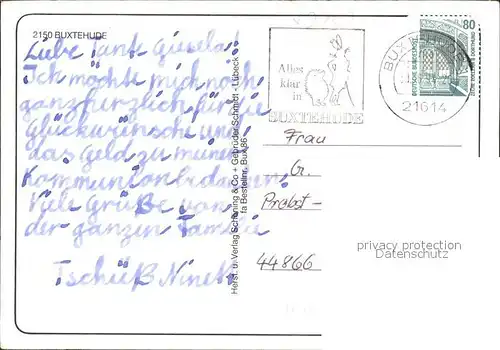 2150 BUXTEHUDE
Liebe Tante Gisela!
Ich möchte mich noch
ganz herzlich für die
Glückwünsche und
das Geld zu meiner
Kommunion bedanken.
Viele Grüße von
der ganzen Familie
Tschüß Ninett
Herst. u. Verlag Schöning & Co + Gebrüder Schmidt - Lübeck
Bestellnr. Bux 86
Alles
klar
in
BUXTEHUDE
BUXTEHUDE
21614
80
DEUTSCHE BUNDESPOST
ZECHE ZOLLERN II DORTMUND
Frau
G.
Probst-
44866
privacy protection
Datenschutz